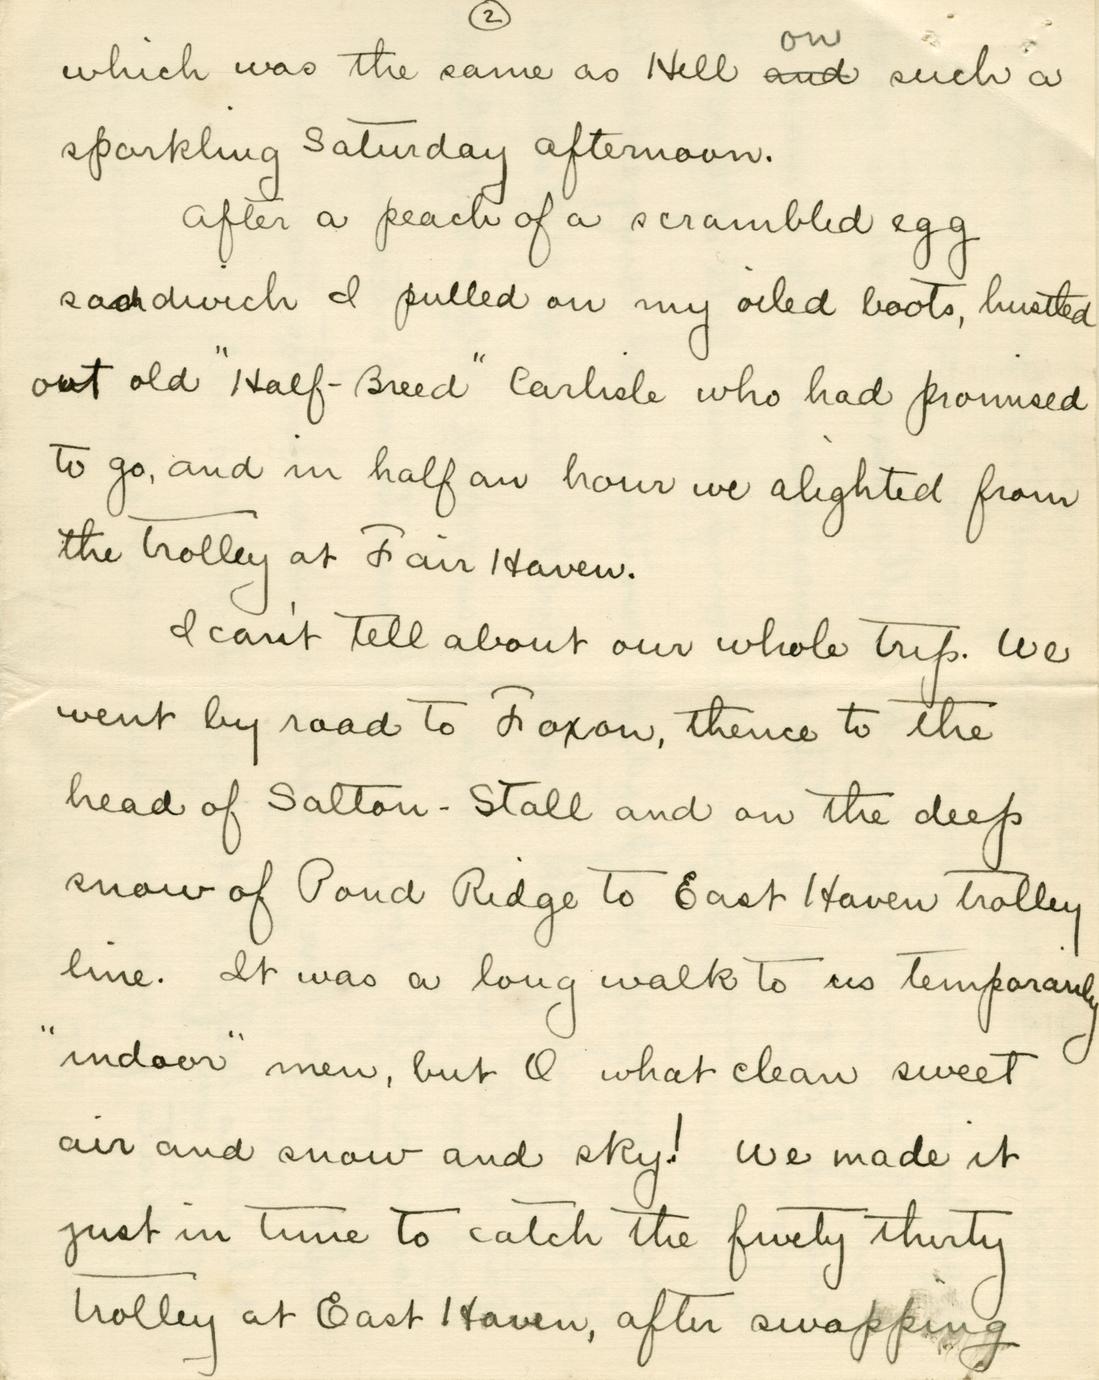 2
which was the same as Hell and on such a
sparkling Saturday afternoon.
After a peach of a scrambled egg
sandwich I pulled on my oiled boots, hustled
out old "Half-Breed" Carlisle who had promised
to go, and in half an hour we alighted from
the trolley at Fair Haven.
I can't tell about our whole trip. We
went by road to Foxon, thence to the
head of Salton-Stall and on the deep
snow of Pond Ridge to East Haven trolley
line. It was a long walk to us temporarily
"indoor" men, but O what clean sweet
air and snow and sky! We made it
just in time to catch the thirty
trolley at East Haven, after swapping